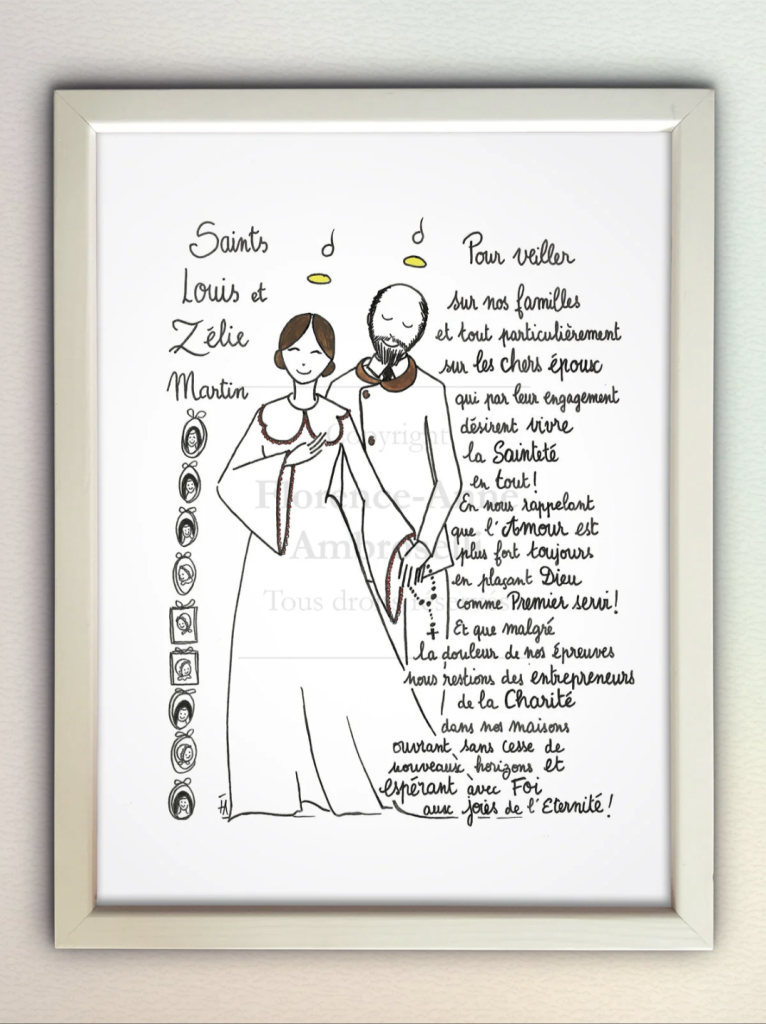 Saints
Louis et
Zélie
Martin
Pour veiller
sur nos familles
et tout particulièrement
sur les chers époux
qui par leur engagement
désirent vivre
la Sainteté
en tout!
En nous rappelant
que l'Amour est
plus fort toujours
en plaçant Dieu
comme Premier servi!
Et que malgré
la douleur de nos épreuves
nous restions des entrepreneurs
de la Charité
dans nos maisons
ouvrant sans cesse de
nouveaux horizons et
espérant avec Foi
aux joies de l'Eternité!
Copyright
Florence-Anne
Ambroselli
Tous droits réservés